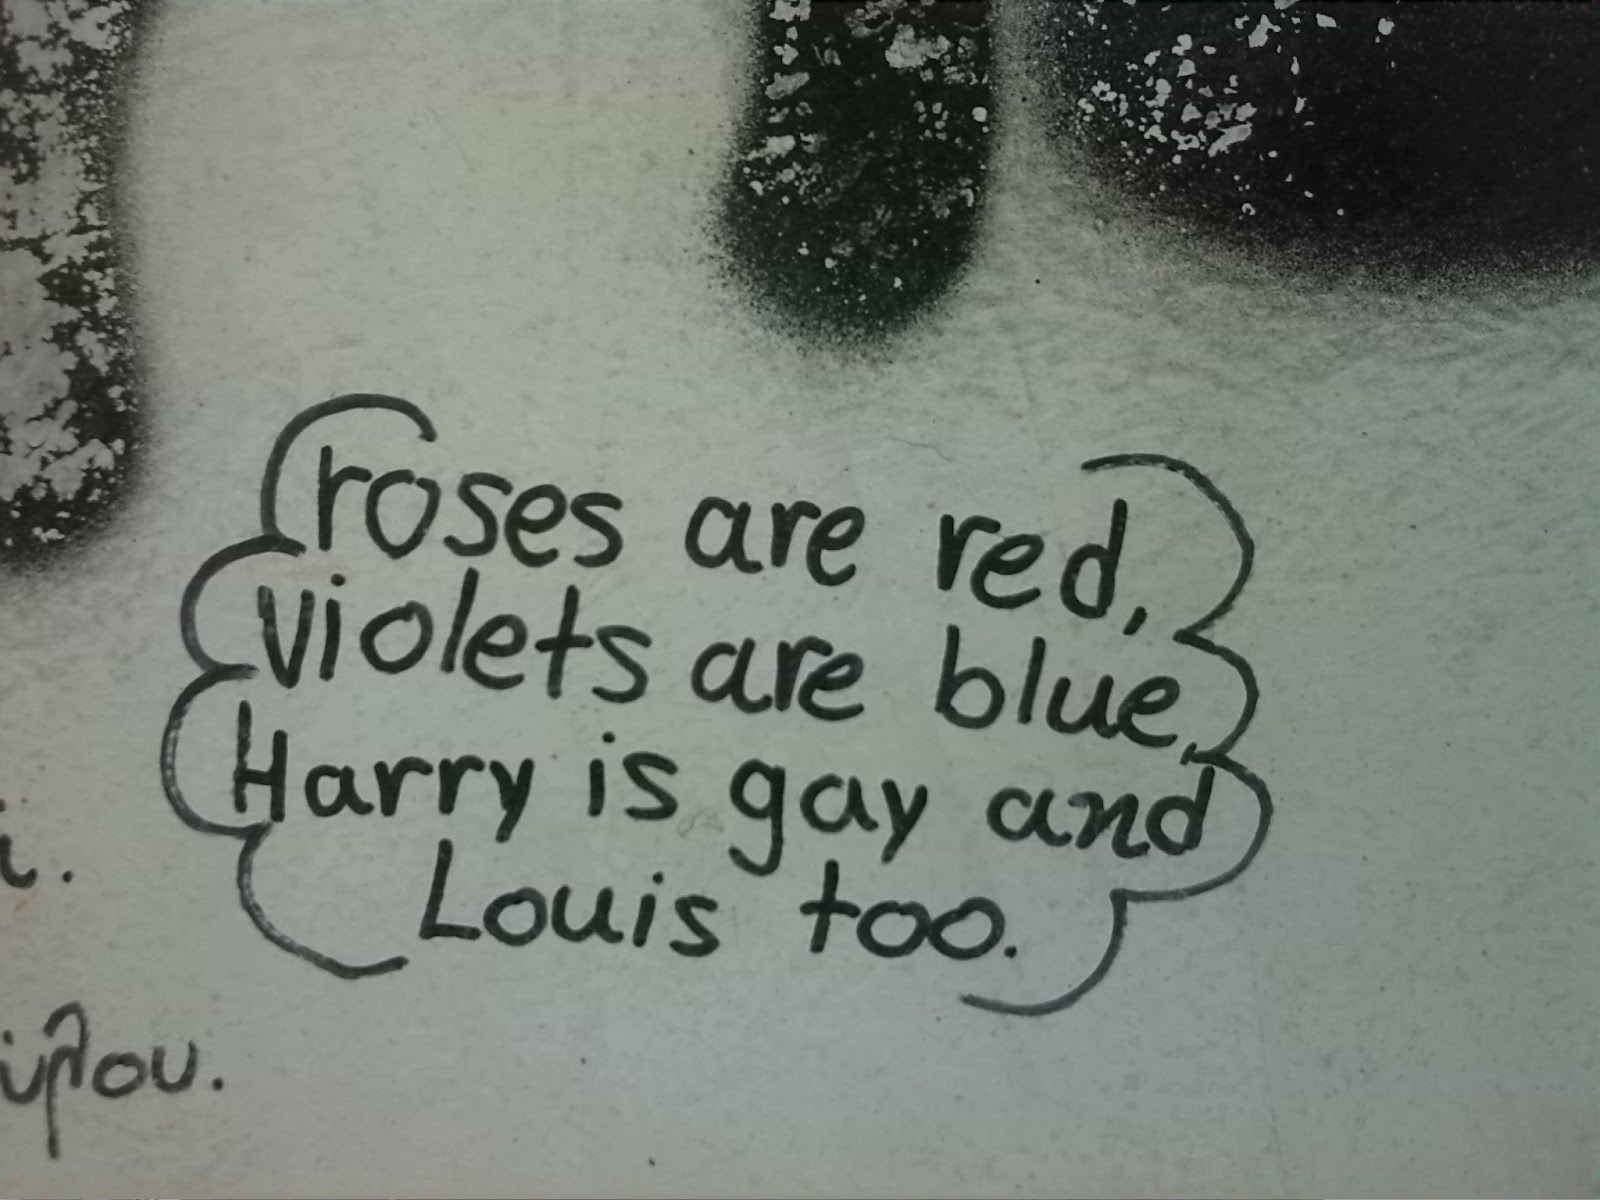 roses are red,
violets are blue,
Harry is gay and
Louis too.
ι.